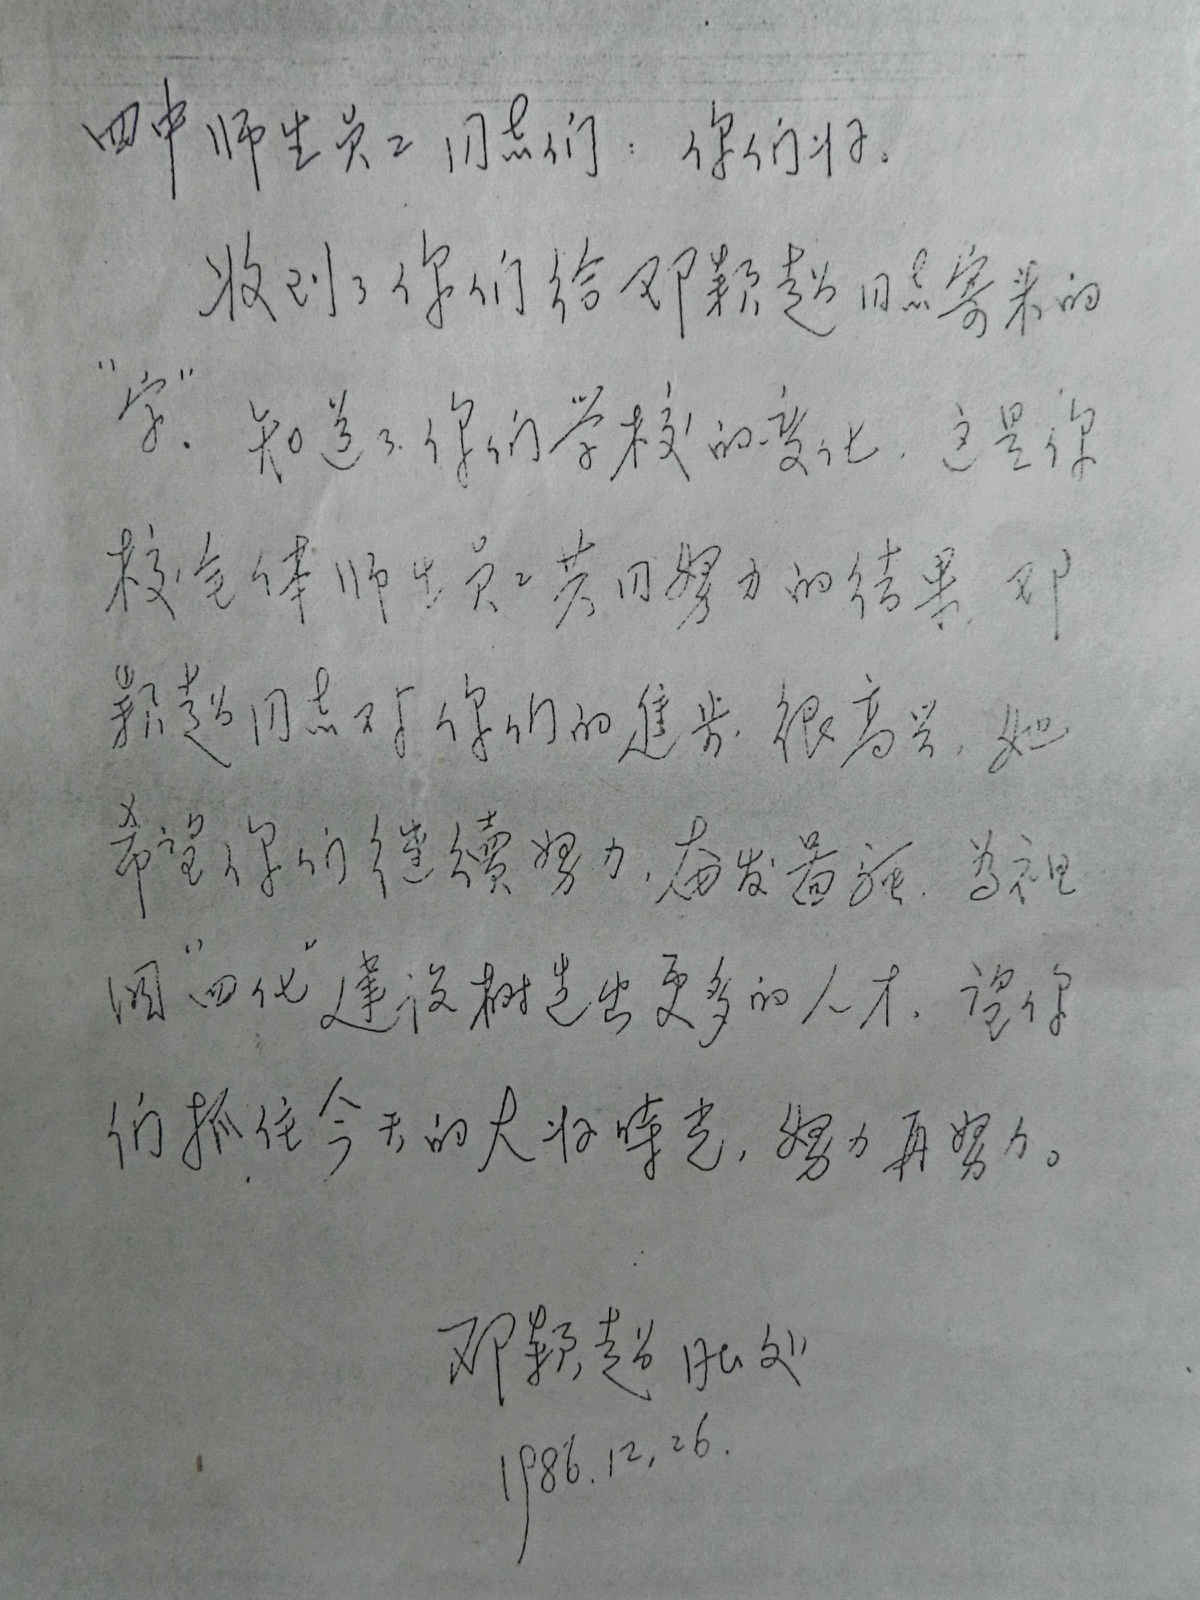 四中师生员工同志们：你们好。
收到了你们给邓颖超同志寄来的
“字”。知道了你们学校的变化，这是你
校全体师生员工共同努力的结果，邓
颖超同志对你们的进步很高兴，她
希望你们继續努力，奋发图强，为祖
国“四化”建设树造出更多的人才，望你
们抓住今天的大好時光，努力再努力。
邓颖超
1986.12.26.